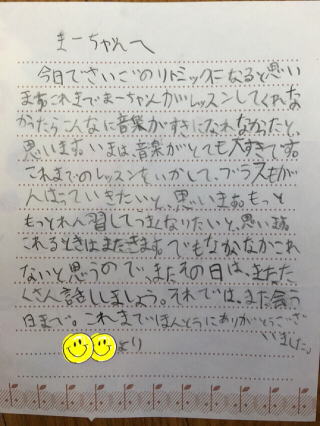 まーちゃんへ
今日でさいごのリトミックになると思い
ます。これまでまーちゃんがレッスンしてくれな
かったらこんなに音楽がすきになれなかったと、
思います。いまは、音楽がとても大すきです。
これまでのレッスンをいかして、ブラスもが
んばっていきたいと、思います。もっと
もっとれん習してうまくなりたいと、思います。
これるときはまたきます。でもなかなかこれ
ないと思うので、またその日は、またた
くさん話ししましょう。それでは、また会う
日まで。これまでほんとうにありがとうござ
いました。
より